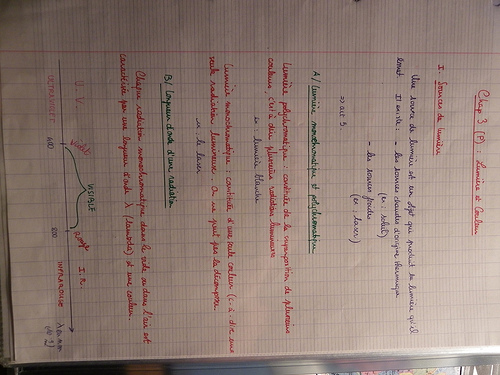 Chap 3 (P) : Lumière et Couleur
I. Sources de lumière
Une source de lumière est un objet qui produit la lumière qu'il
émet. Il existe : - les sources chaudes d'origine thermique
(ex : soleil)
- les sources froides
(ex : laser)
=> act 3
A/ Lumière monochromatique et polychromatique
Lumière polychromatique : constituée de la superposition de plusieurs
couleurs, c'est à dire plusieurs radiations lumineuses
ex : lumière blanche
Lumière monochromatique : constituée d'une seule couleur (c-à-dire une
seule radiation lumineuse. On ne peut pas la décomposer.
ex : le laser
B/ Longueur d'onde d'une radiation
Chaque radiation monochromatique dans le vide ou dans l'air est
caractérisée par une longueur d'onde λ (lambda) et une couleur.
U.V. I.R.
VISIBLE
ULTRAVIOLET 400 800 INFRAROUGE